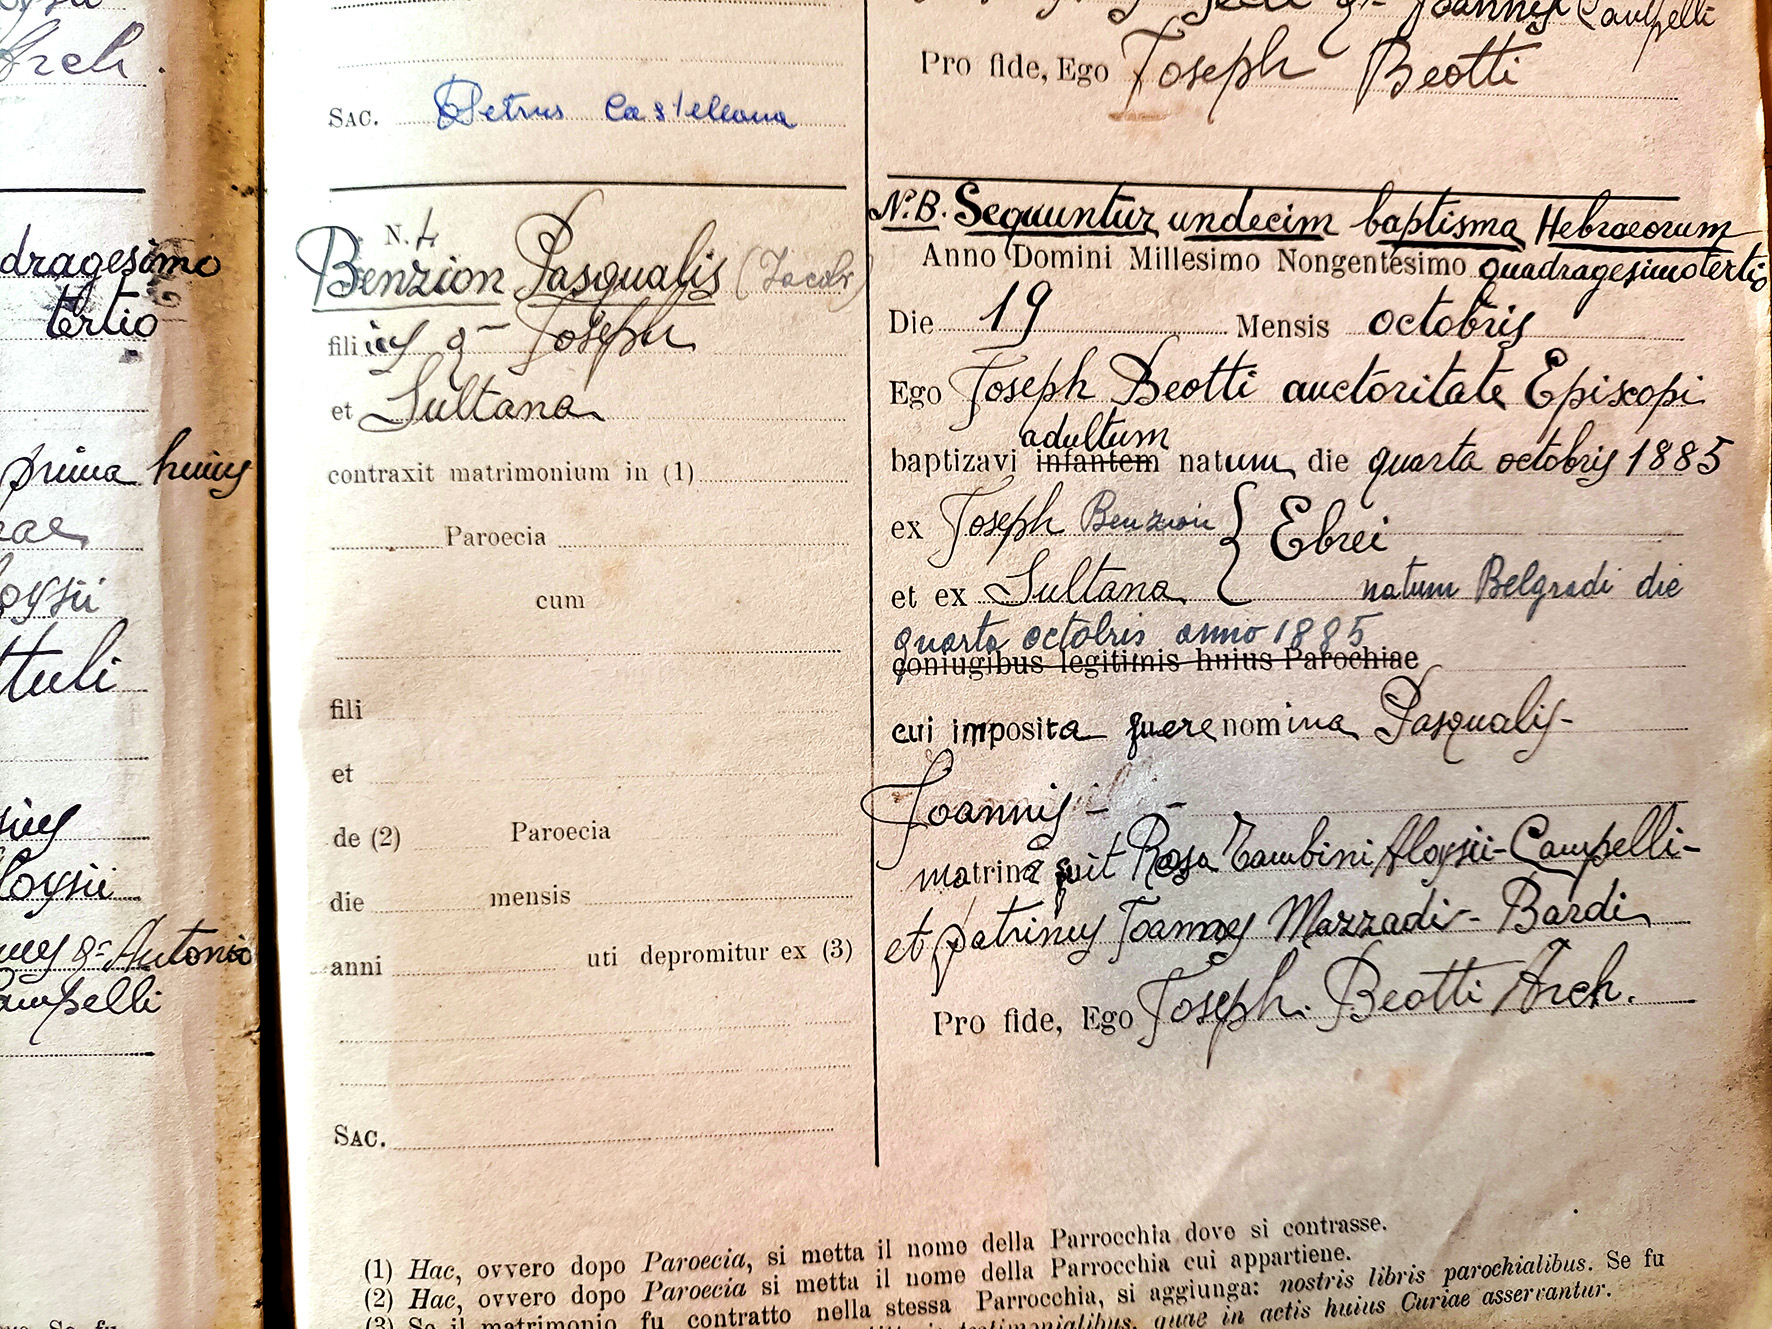 Arch.
dragesimo
tertio
prima huius
Aloysii
Antonio
Campelli
SAC. Petrus Castellana
N. 4
Benzion Pasqualis (Jacob)
filiius q- Joseph
et Sultana
contraxit matrimonium in (1)
Paroecia
cum
fili
et
de (2) Paroecia
die mensis
anni uti depromitur ex (3)
SAC.
Joannis Campelli
Pro fide, Ego Joseph Beotti
N.B. Sequuntur undecim baptisma Hebraeorum
Anno Domini Millesimo Nongentesimo quadragesimotertio
Die 19 Mensis octobris
Ego Joseph Beotti auctoritate Episcopi
adultum
baptizavi infantem natum die quarta octobris 1885
ex Joseph Benzion } Ebrei
et ex Sultana natum Belgradi die
quarta octobris anno 1885
coniugibus legitimis huius Parochiae
cui imposita fuere nomina Pasqualis-
Joannis-
matrina fuit Rosa Tambini Aloysii-Campelli-
et patrinus Joannes Mazzadi- Bardi
Pro fide, Ego Joseph. Beotti Arch.
(1) Hac, ovvero dopo Paroecia, si metta il nome della Parrocchia dove si contrasse.
(2) Hac, ovvero dopo Paroecia si metta il nome della Parrocchia cui appartiene.
(3) Se il matrimonio fu contratto nella stessa Parrocchia, si aggiunga: nostris libris parochialibus. Se fu
testimonialibus, quae in actis huius Curiae asservantur.